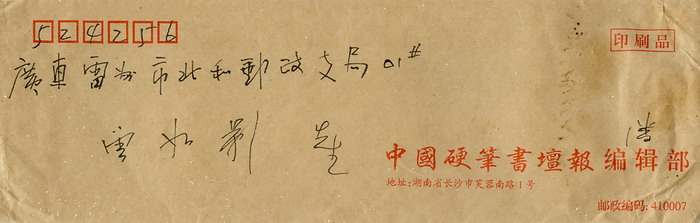 524256
印刷品
廣東雷州市北和郵政支局 01#
雲如影 先生
潘
中國硬筆書壇報编辑部
地址:湖南省长沙市芙蓉南路1号
邮政编码:410007